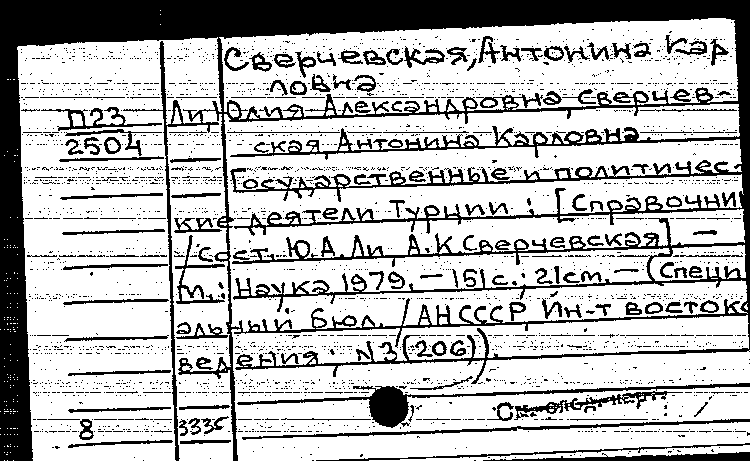 Сверчевская, Антонина Кар
ловна
П23 Ли, Юлия Александровна, Сверчев-
2504 ская, Антонина Карловна.
Государственные и политичес-
кие деятели Турции : [Справочник
/ Сост. Ю.А. Ли, А.К. Сверчевская]. —
М.: Наука, 1979. — 151 с. ; 21 см. — (Специ
альный бюл. / АН СССР, Ин-т востоко
ведения ; N 3 (206)).
8